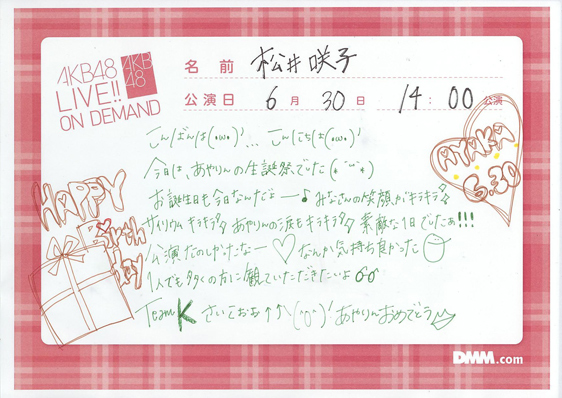 AKB48
LIVE!!
ON DEMAND
AKB
48
名前 松井咲子
公演日 6月 30日 14:00公演
こんばんは(・ω・)ノ… こんにちは(・ω・)ノ
今日は、あやりんの生誕祭でした
お誕生日も今日なんだよー♪ みなさんの笑顔がキラキラ
サイリウムキラキラ あやりんの涙もキラキラ 素敵な1日でしたぁ!!!
公演たのしかったなー♡なんか気持ち良かった
1人でも多くの方に観ていただきたいよ
TeamK さいこおぉ↑↑\(^o^)/ あやりんおめでとう
HAPPY
Birth
day
AYAKA
6.30
DMM.com